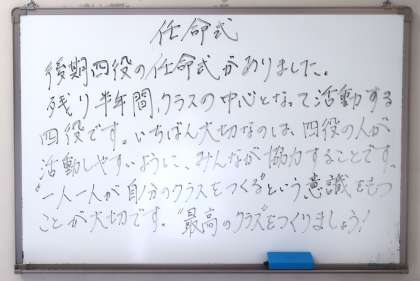 任命式
後期四役の任命式がありました。
残り半年間、クラスの中心となって活動する
四役です。いちばん大切なのは、四役の人が
活動しやすいように、みんなが協力することです。
"一人一人が自分のクラスをつくる"という意識をもつ
ことが大切です。"最高のクラス"をつくりましょう!